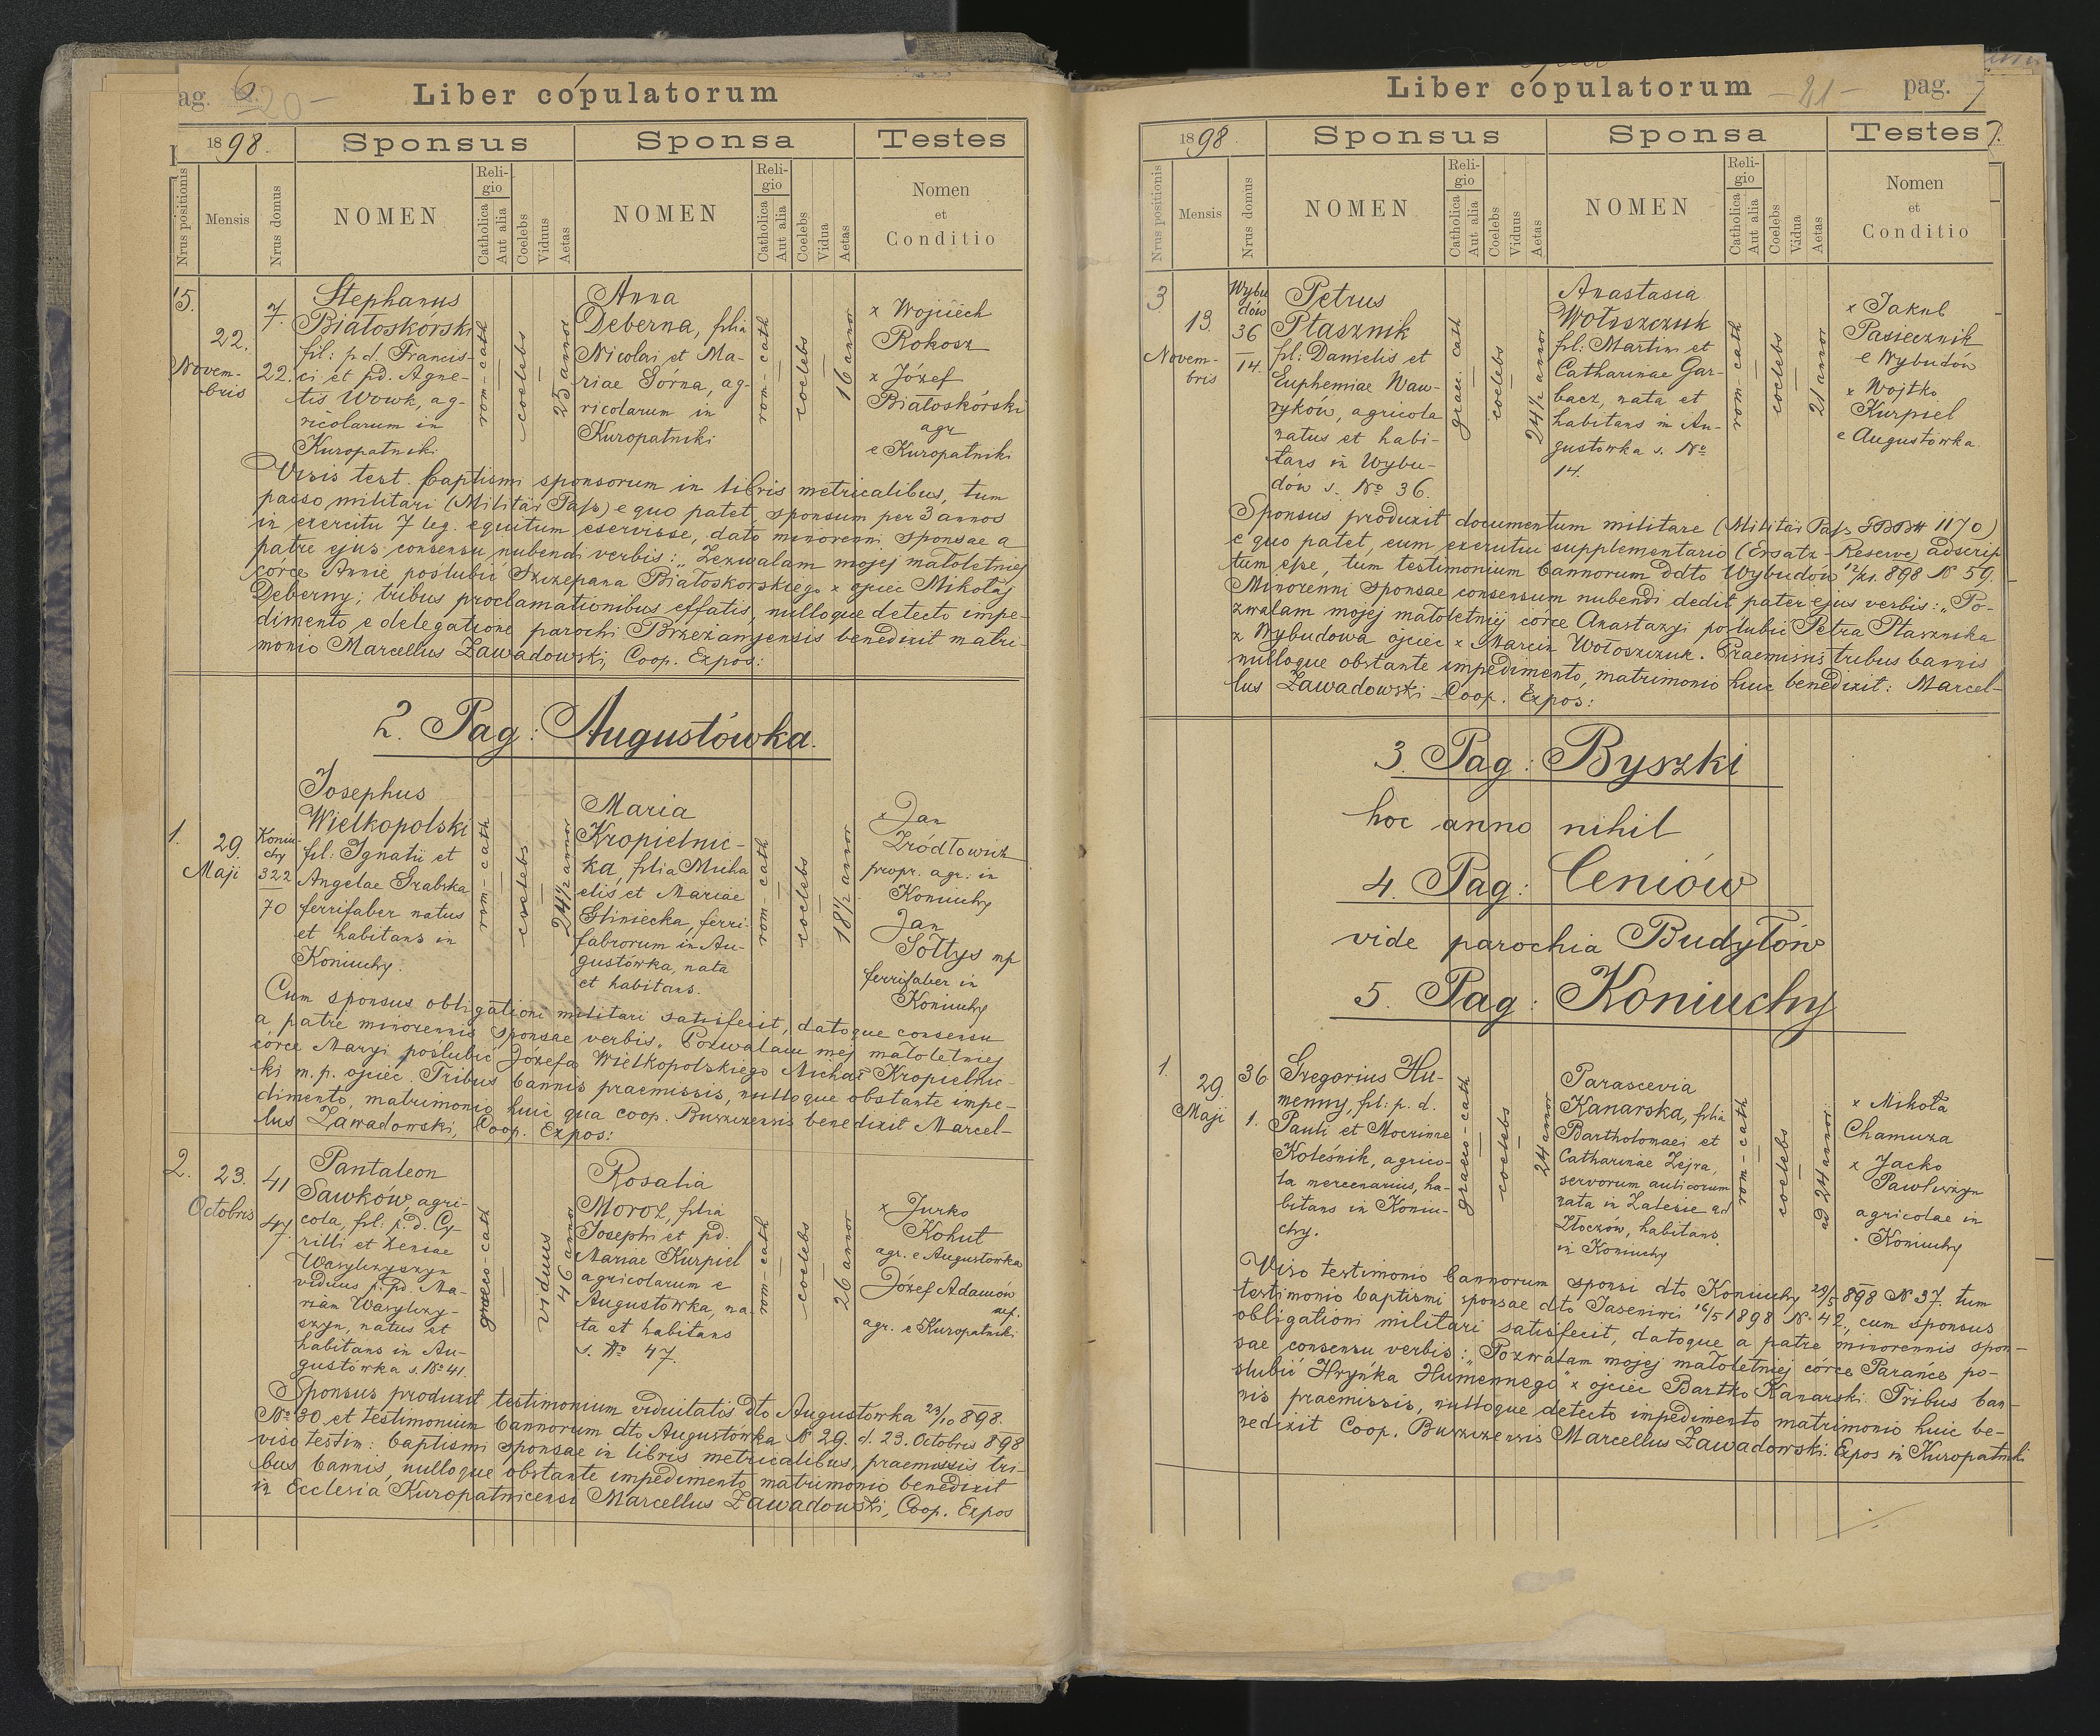 ag. 6.
-20-
Liber copulatorum
1898.
Sponsus
Sponsa
Testes
Nrus positionis
Mensis
Nrus domus
NOMEN
Religio
Catholica
Aut alia
Coelebs
Viduus
Aetas
NOMEN
Religio
Catholica
Aut alia
Coelebs
Vidua
Aetas
Nomen
et
Conditio
5.
22.
Novem-
bris
7.
22.
Stephanus
Białoskórski
fil: p d. Francis-
ci et pd. Agne-
tis Wowk, ag-
ricolarum in
Kuropatniki
rom-cath
coelebs
25 annor
Anna
Deberna, filia
Nicolai et Ma-
riae Górna, ag-
ricolarum in
Kuropatniki
rom-cath
coelebs
16 annor
x Wojciech
Rokosz
x Józef
Białoskórski
agr
e Kuropatniki
Visis test. baptismi sponsorum in libris metricalibus, tum
passo militari (Militär Pass) e quo patet sponsum per 3 annos
in exercitu 7 leg. equitum eservisse, dato minorenni sponsae a
patre ejus consensu nubendi verbis: „Zezwalam mojej małoletniej
córce Annie poślubić Szczepana Białoskorskiego x ojciec Mikołaj
Deberny; tribus proclamationibus effatis, nulloque detecto impe-
dimento e delegatione parochi Brzeżanyensis benedixit matri-
monio Marcellus Zawadowski, Coop. Expos:
2. Pag: Augustówka.
1.
29.
Maji
Koniu-
chy
322
70
Josephus
Wielkopolski
fil: Ignatii et
Angelae Grabska
ferrifaber natus
et habitans in
Koniuchy.
rom-cath
coelebs
24½ annor
Maria
Kropielnic-
ka, filia Micha
elis et Mariae
Gliniecka, ferri-
fabrorum in Au-
gustówka, nata
et habitans.
rom-cath
coelebs
18½ annor
x Jan
Źródłowski
propr. agr: in
Koniuchy
Jan
Sołtys mp
ferrifaber in
Koniuchy
Cum sponsus obligationi militari satisfecit, datoque consensu
a patre minorennis sponsae verbis „Pozwalam mej małoletniej
córce Maryi poślubić Józefa Wielkopolskiego Michał Kropielnic-
ki m.p. ojciec. Tribus bannis praemissis, nulloque obstante impe-
dimento, matrimonio huic qua coop. Buszczensis benedixit Marcel-
lus Zawadowski, Coop. Expos:
2.
23.
Octobris
41
47.
Pantaleon
Sawków, agri-
cola, fil: p. d. Cy-
rilli et Xeniae
Wasylczyszyn
viduus p. pd. Ma-
riam Wasylczy-
szyn, natus et
habitans in Au-
gustówka s. No 41.
graeco-cath
viduus
46 annor
Rosalia
Moroz, filia
Josephi et pd.
Mariae Kurpiel
agricolarum e
Augustówka, na-
ta et habitans
s. No 47.
rom-cath
coelebs
26 annor
x Jurko
Kohut
agr. e Augustówka
Józef Adamów
mp.
agr. e Kuropatniki
Sponsus produxit testimonium viduitatis dto Augustówka 23/10 898.
No 30 et testimonium bannorum dto Augustówka N 29. d. 23. Octobris 898
viso testim: baptismi sponsae in libris metricalibus, praemissis tri-
bus bannis, nulloque obstante impedimento matrimonio benedixit
in Ecclesia Kuropatnicensi Marcellus Zawadowski, Coop. Expos
Liber copulatorum
-21-
pag. 7
1898.
Sponsus
Sponsa
Testes
7.
Nrus positionis
Mensis
Nrus domus
NOMEN
Religio
Catholica
Aut alia
Coelebs
Viduus
Aetas
NOMEN
Religio
Catholica
Aut alia
Coelebs
Vidua
Aetas
Nomen
et
Conditio
3
13.
Novem-
bris
Wybu
dów
36
14.
Petrus
Ptasznik
fil: Danielis et
Euphemiae Waw-
ryków, agricola
natus et habi-
tans in Wybu-
dów s. No 36.
graec. cath
coelebs
24½ annor
Anastasia
Wołoszczuk
fil: Martini et
Catharinae Gar-
bacz, nata et
habitans in Au-
gustowka s. No
14.
rom-cath
coelebs
21 annor
x Jakub
Pasiecznik
e Wybudów
x Wojtko
Kurpiel
e Augustówka
Sponsus produxit documentum militare (Militär Pass GBBH 1170)
e quo patet, eum exercitui supplementario (Ersatz-Reserve) adscrip
tum esse, tum testimonium bannorum ddto Wybudów 12/XI. 898 N 59.
Minorenni sponsae consensum nubendi dedit pater ejus verbis: „Po-
zwalam mojej małoletniej córce Anastazyi poślubić Petra Ptasznika
z Wybudowa ojciec x Marcin Wołoszczuk. Praemissis tribus bannis
nulloque obstante impedimento, matrimonio huic benedixit: Marcel-
lus Zawadowski Coop. Expos:
3. Pag: Byszki
hoc anno nihil
4. Pag: Ceniów
vide parochia Budyłów
5. Pag: Koniuchy
1.
29.
Maji
36.
1.
Gregorius Hu-
menny, fil: p. d.
Pauli et Mocrinae
Koleśnik, agrico-
la mercenarius, ha-
bitans in Koniu-
chy.
graeco-cath
coelebs
24 annor
Parascevia
Kanarska, filia
Bartholomaei et
Catharinae Zejra,
servorum aulicorum
nata in Zalesie ad
Złoczów, habitans
in Koniuchy
rom-cath
coelebs
ad 24 annor.
x Mikoła
Chamuza
x Jacko
Pawliszyn
agricolae in
Koniuchy
Viso testimonio bannorum sponsi dto Koniuchy 29/5 898 N 37. tum
testimonio baptismi sponsae dto Jasenivci 16/5 1898 N 42., cum sponsus
obligationi militari satisfecit, datoque a patre minorennis spon-
sae consensu verbis: „Pozwalam mojej małoletniej córce Parańce po-
slubić Hryńka Humennego" x ojciec Bartko Kanarski. Tribus ban-
nis praemissis, nulloque detecto impedimento matrimonio huic be-
nedixit Coop. Buszczensis Marcellus Zawadowski. Expos in Kuropatniki